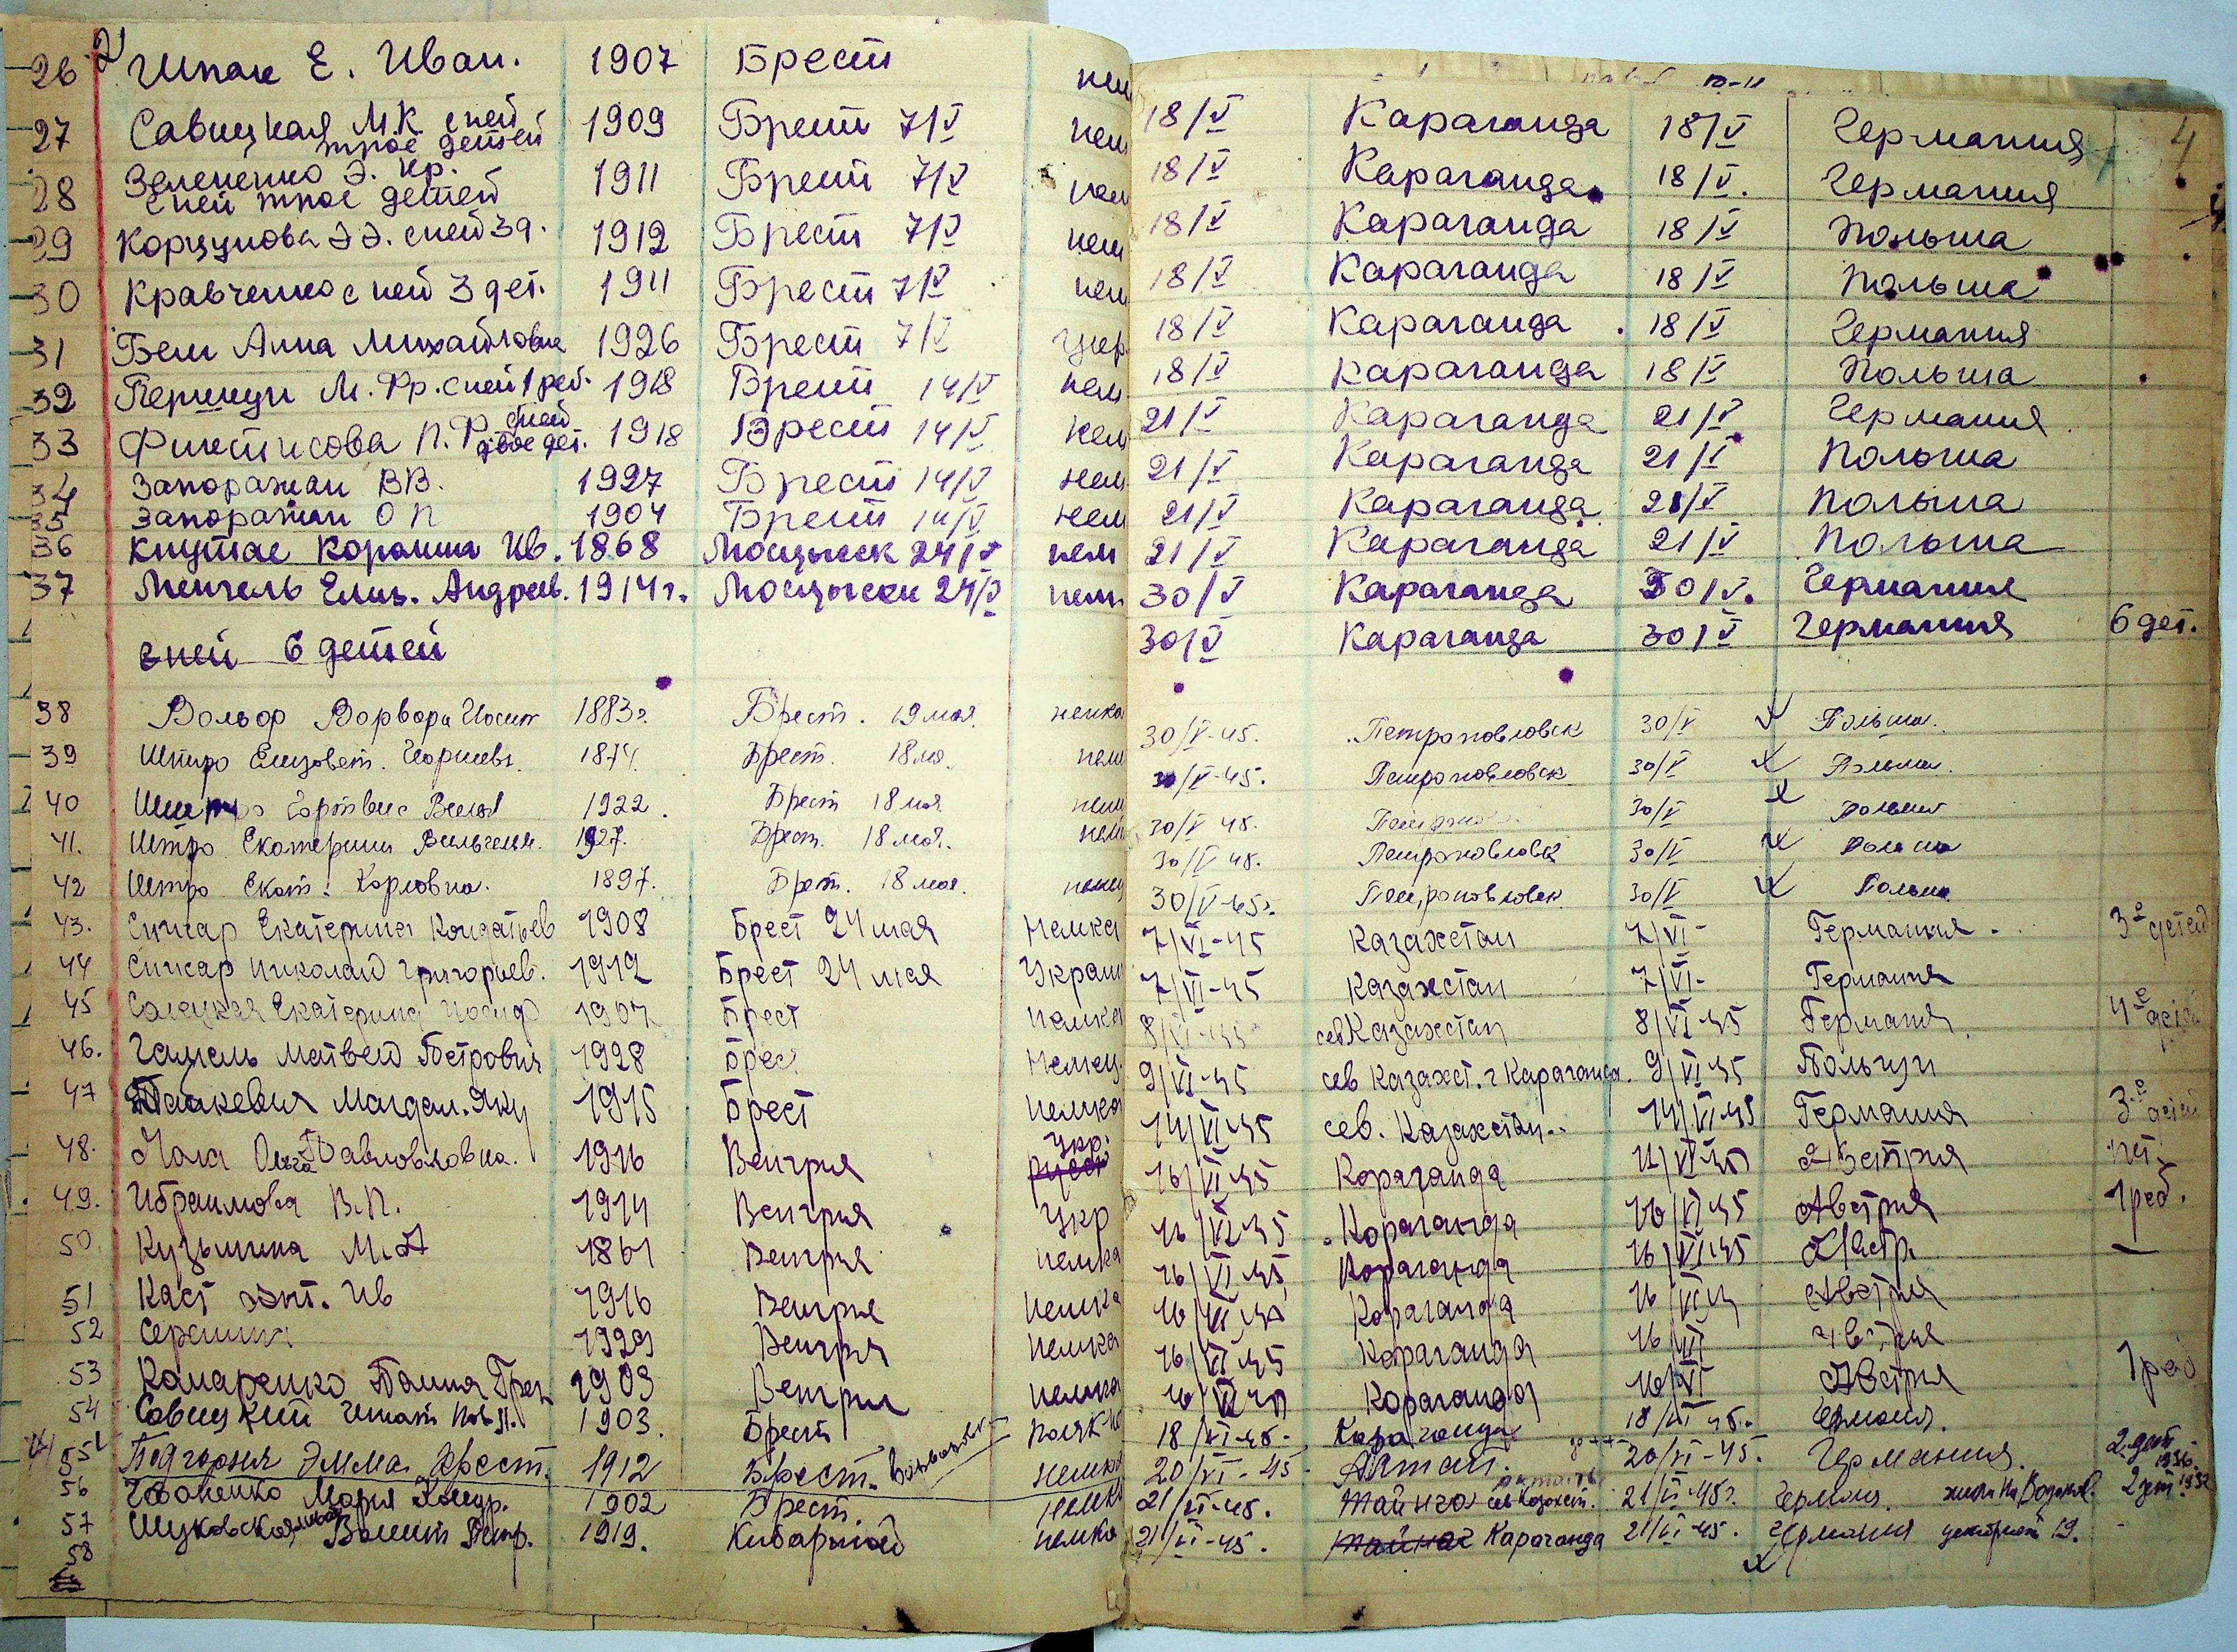 26 Шпак Е. Иван. 1907 Брест нем
27 Савицкая М.К. с ней трое детей 1909 Брест 7/V нем
28 Зелененко Э. Кр. с ней трое детей 1911 Брест 7/V нем
29 Корцунова Э Э. с ней 3 д. 1912 Брест 7/V нем
30 Кравченко с ней 3 дет. 1911 Брест 7/V нем
31 Бем Анна Михайловна 1926 Брест 7/V укр.
32 М. Фр. с ней 1 реб. 1918 Брест 14/V нем
33 П. Ф. с ней двое дет. 1918 Брест 14/V нем
34 Запорожан В В. 1927 Брест 14/V нем
35 Запорожан О П 1904 Брест 14/V нем
36 Ив. 1868 24/V нем
37 Менгель Елиз. Андреев. 1914 г. Мосцыски 24/V нем.
с ней 6 детей
38 Вольф Варвара Иосип 1883 г. Брест. 19 мая. немка
39 Штро Елизовет. Георгиевн. 1874. Брест. 18 ма. нем
40 1922. Брест 18 мая нем
41. Штро Екатерина Вильгельм. 1927. Брест. 18 мая. нем
42 Штро Екат. Карловна. 1897. Брест. 18 мая. немц
43. Сичкар Екатерина 1908 Брест 24 мая Немка
44 Сичкар Николай Григорьев. 1912 Брест 24 мая Украин
45 Екатерина Иосиф 1907 Брест немка
46. Гамель Матвей Петрович 1928 Брест немец.
47 Магдал. Яку 1915 Брест немка
48. Ольга Павловловна. 1916 Венгрия укр.
49. Ибраимова В.П. 1914 Венгрия укр
50. Кузьмина М. А 1861 Венгрия немка
51 Каст Ив 1916 Венгрия немка
52 1929 Венгрия немка
53 Комаренко 1903 Венгрия немка
54 Савицкий Игнат Пов 1903. Брест поляк
55 Подгорная Эмма Крест. 1912 Брест. немка
56 Мария 1902 Брест. немка
57 Петр. 1919. немка
58
4
18/V Караганда 18/V Германия
18/V Караганда 18/V. Германия
18/V Караганда 18/V Польша
18/V Караганда 18/V Польша
18/V Караганда 18/V Германия
18/V Караганда 18/V Польша
21/V Караганда 21/V Германия
21/V Караганда 21/V Польша
21/V Караганда 21/V Польша
21/V Караганда 21/V Польша
30/V Караганда 30/V. Германия
30/V Караганда 30/V Германия 6 дет.
30/V-45. Петроповловск 30/V Польша.
30/V-45. Петроповловск 30/V Польша.
30/V 45. 30/V Польша
30/V 45. Петроповловск 30/V Польша
30/V-45 г. Петроповловск 30/V Польша
7/VI-45 Казахстан 7/VI- Германия. 3е детей
7/VI-45 Казахстан 7/VI- Германия
8/VI-45 сев Казахстан 8/VI-45 Германия 4е детей
9/VI-45 сев Казахст. г Караганда. 9/VI-45 Польши
14/VI-45 сев. Казахстан 14/VI-45 Германия 3е детей
16/VI-45 Кораганда Австрия нет.
16/VI-45 Кораганда 16/VI-45 Австрия 1 реб.
16/VI-45 Кораганда 16/VI-45 Австр. —
16/VI-45 Кораганда 16/VI-45 Австрия
16/VI-45 Кораганда 16/VI Австрия
16/VI-45 Кораганда 16/VI Австрия 1 реб
18/VI-45- Караганда 18/VI 45. Германия.
20/VI-45- 20/VI-45. Германия. 2 дет 1936.
21/VI-45. сев Казахст. 21/VI-45 г. Германия. 2 дет 1932
21/VI-45. Караганда 21/VI-45. Германия 19. -